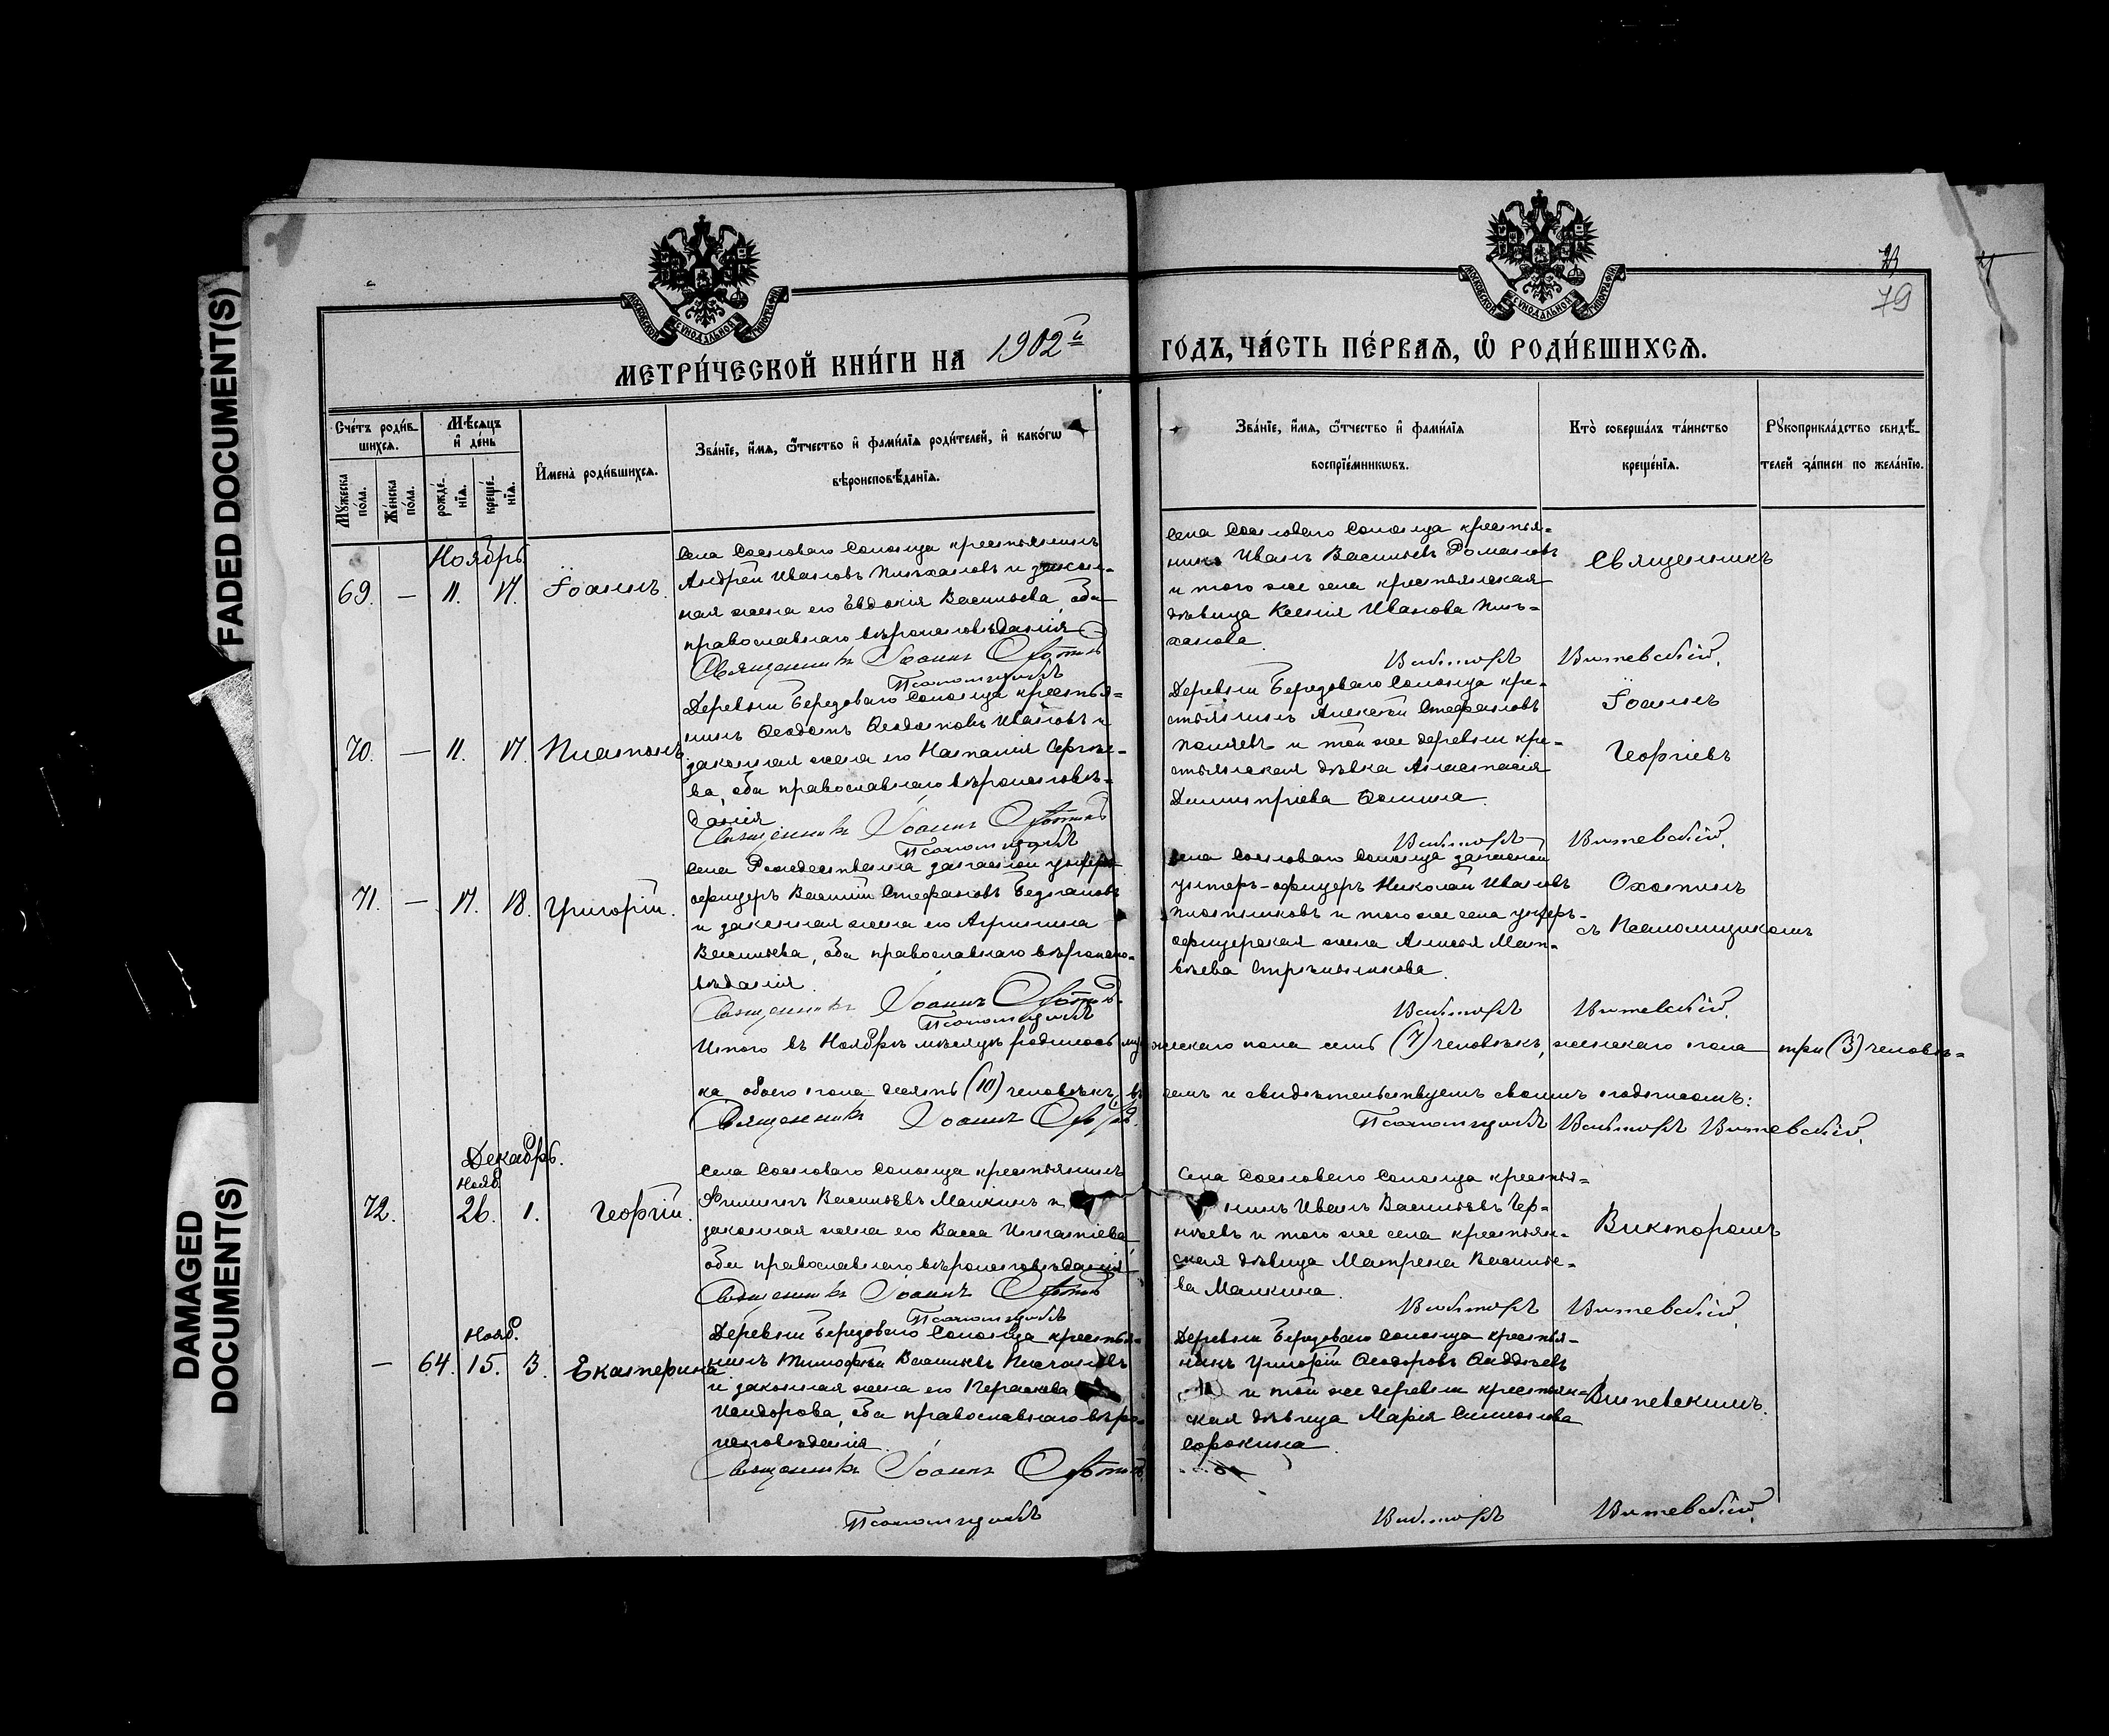 FADED DOCUMENT(S)
DAMAGED DOCUMENT(S)
МОСКОВСКОЙ СѴНОДАЛЬНОЙ ТИПОГРАФІИ
МОСКОВСКОЙ СѴНОДАЛЬНОЙ ТИПОГРАФІИ
79
МЕТРИ́ЧЕСКОЙ КНИ́ГИ НА 1902й ГО́ДЪ, ЧА́СТЬ ПЕ́РВАѦ, Ѡ҆ РОДИ́ВШИХСѦ.
Сче́тъ роди́в-
шихсѧ.
Мꙋ́жеска по́ла.
Же́нска по́ла.
Мѣ́сѧцъ и҆ де́нь
рожде́-нїѧ.
креще́-нїѧ.
И҆мена̀ роди́вшихсѧ.
Зва́нїе, и҆́мѧ, ѻ҆́тчество и҆ фами́лїѧ роди́телей, и҆ како́гѡ
вѣроисповѣ́данїѧ.
Зва́нїе, и҆́мѧ, ѻ҆́тчество и҆ фами́лїѧ
воспрїе́мникѡвъ.
Кто̀ соверша́лъ та́инство
креще́нїѧ.
Рꙋкоприкла́дство свидѣ́-
телей за́писи по жела́нїю.
Ноябрь
69. — 11. 17. Іоаннъ.
Села Сосноваго Солонца крестьянинъ
Андрей Ивановъ и закон-
ная жена его Евдокія Васильева, оба
православнаго вѣроисповѣданія
Священникъ Іоаннъ
Псаломщикъ
Села Сосноваго Солонца крестья-
нинъ Иванъ Васильевъ Романовъ
и того же села крестьянская
дѣвица Ксенія Иванова
Викторъ Витевскій.
Священникъ
70. — 11. 17. Платонъ.
Деревни Березоваго Солонца крестья-
нинъ Ѳедотъ Ѳедотовъ Ивановъ и
законная жена его Наталія Сергѣе-
ва, оба православнаго вѣроисповѣ-
данія
Священникъ Іоаннъ
Псаломщикъ
Деревни Березоваго Солонца кре-
стьянинъ Алексѣй Стефановъ
и той же деревни кре-
стьянская дѣвка Анастасія
Димитріева Ѳомина.
Викторъ Витевскій.
Іоаннъ
Георгіевъ
71. — 17. 18. Григорій.
Села Рождествена запасной унтеръ-
офицеръ Василій Стефановъ
и законная жена его Агрипина
Васильева, оба православнаго вѣроиспо-
вѣданія.
Священникъ Іоаннъ
Псаломщикъ
Села Сосноваго Солонца запасной
унтеръ-офицеръ Николай Ивановъ
Плотниковъ и того же села унтеръ-
офицерская жена Анисья Мат-
вѣева Стрѣльникова.
Викторъ Витевскій.
Охотинъ
съ Псаломщикомъ
Итого въ Ноябрѣ мѣсяцѣ родилось мужескаго пола семь (7) человѣкъ, женскаго пола три (3) человѣ-
ка обоего пола десять (10) человѣкъ, въ чемъ и свидѣтельствуемъ своимъ подписомъ:
Священникъ Іоаннъ
Псаломщикъ Викторъ Витевскій.
Декабрь.
Нояб.
72. 26. 1. Георгій.
Села Сосноваго Солонца крестьянинъ
Филиппъ Васильевъ Малкинъ и
законная жена его Васса Игнатіева
оба православнаго вѣроисповѣданія
Священникъ Іоаннъ
Псаломщикъ
Села Сосноваго Солонца крестья-
нинъ Иванъ Васильевъ Чер-
нѣевъ и того же села крестьян-
ская дѣвица Матрена Василье-
ва Малкина.
Викторъ Витевскій.
Викторомъ
Нояб.
— 64. 15. 3. Екатерина
Деревни Березоваго Солонца крестья-
нинъ Тимофей Васильевъ
и законная жена его
Исидорова, оба православнаго вѣро-
исповѣданія.
Священникъ Іоаннъ
Псаломщикъ
Деревни Березоваго Солонца крестья-
нинъ Григорій Ѳеодоровъ Ѳаддѣевъ
и той же деревни крестьян-
ская дѣвица Марія Симеонова
Сорокина.
Викторъ Витевскій.
Витевскимъ.